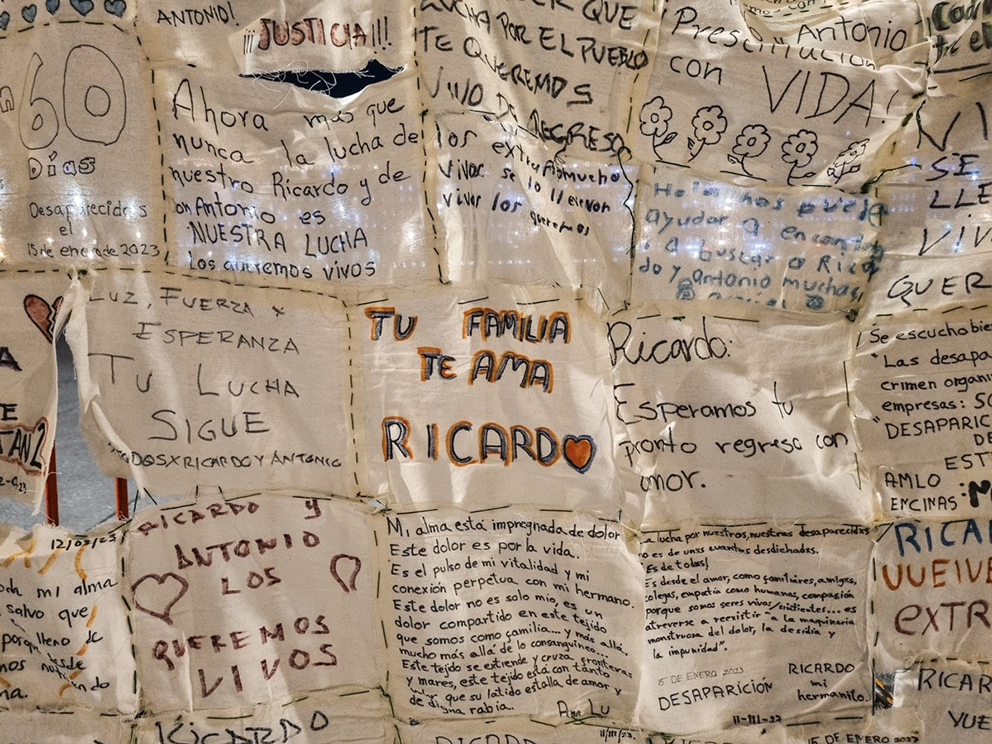 ANTONIO!
¡¡¡JUSTICIA!!!
60
Días
Desaparecidos
el
15 de enero de 2023
Ahora más que
nunca la lucha de
nuestro Ricardo y de
Antonio es
NUESTRA LUCHA
Los queremos vivos
QUE
LUCHA POR EL PUEBLO
TE QUEREMOS
VIVO DE REGRESO
los extraño mucho
vivos se lo llevaron
vivos los queremos
Antonio
Presentación
con VIDA!
ayudar a encontrar
a buscar a Rica
do y antonio muchas
SE
LLE
VIV
QUER
LUZ, FUERZA Y
ESPERANZA
TU LUCHA
SIGUE
TODOS X RICARDO Y ANTONIO
TU FAMILIA
TE AMA
RICARDO
Ricardo:
Esperamos tu
pronto regreso con
amor.
Se escucho bie
"Las desapa
crimen organi
empresas: SO
"DESAPARIC
DE
EST
AMLO
ENCINAS:
12/03/23
toda mi alma
salvo que
lleno de
RICARDO y
ANTONIO
LOS
QUEREMOS
VIVOS
Mi alma está impregnada de dolor
Este dolor es por la vida.
Es el pulso de mi vitalidad y mi
conexión perpetua con mi hermano.
Este dolor no es solo mio, es un
dolor compartido en este tejido
que somos como familia... y más allá,
mucho más allá de lo consanguíneo...
Este tejido se extiende y cruza fronteras
y mares, este tejido está con tanto
que su latido estalla de amor y
de digna rabia.
Ana Lu
11/III/23
La lucha por nuestros, nuestras desaparecidxs
no es de unxs cuantxs desdichadxs.
Es de todxs!
Es desde el amor, como familiares, amigxs,
colegas, empatía como humanos, compasión
porque somos seres vivos/sintientes... es
atreverse a reexistir "a la maquinaria
monstruosa del dolor, la desidia y
la impunidad".
15 DE ENERO 2023
DESAPARICIÓN
RICARDO
mi
hermanito.
11-III-23
RICAR
VUELVE
EXTR
RICAR
VUE
RICARDO
RICARDO
15 DE ENERO 2023